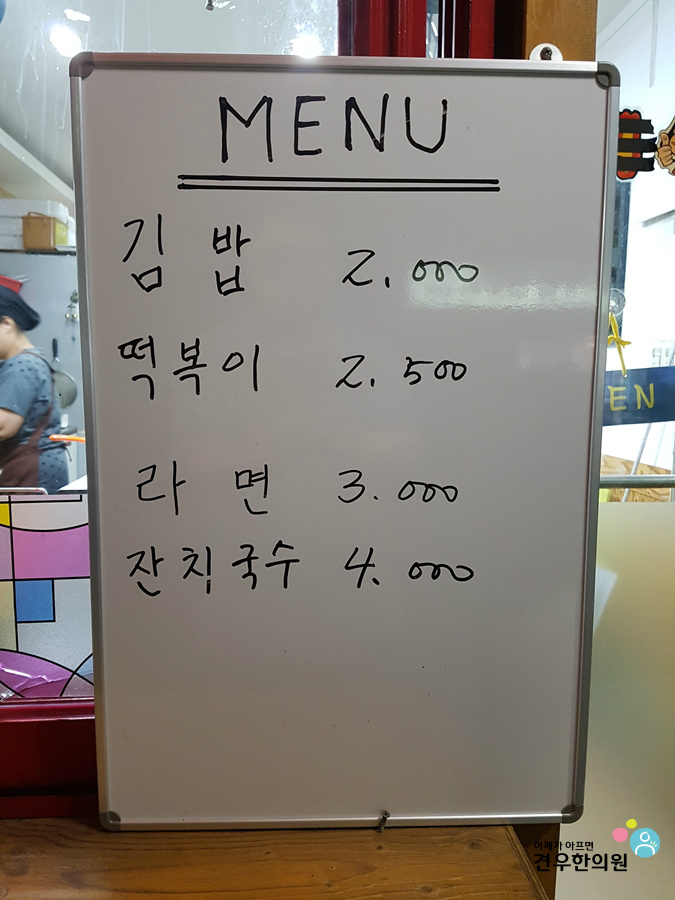 MENU
김밥 2.000
떡볶이 2.500
라면 3.000
잔치국수 4.000
EN
어깨가 아프면
견우한의원